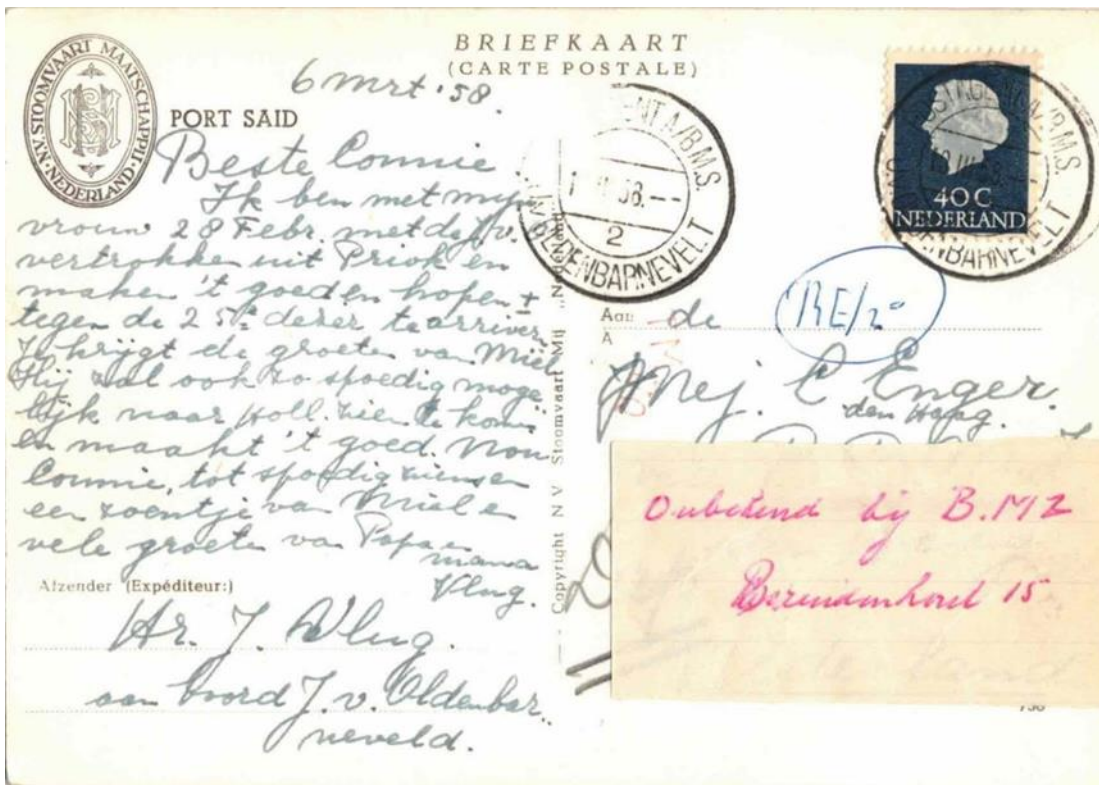 BRIEFKAART
(CARTE POSTALE)
N.V. STOOMVAART MAATSCHAPPIJ NEDERLAND
6 mrt '58.
PORT SAID
Beste Connie
Ik ben met mijn
vrouw 28 Febr. met de J.v.
vertrokken uit Priok en
maken 't goed en hopen ±
tegen de 25e dezer te arriver
Je krijgt de groeten van Miel
Hij zal ook zo spoedig moge
lijk naar Holl. zien te kom
en maakt 't goed. Nou
Connie, tot spoedig ziens en
een zoentje van Miel e
vele groete van Papa en
mama
Vlug.
Afzender (Expéditeur:)
Hr. J. Vlug.
aan boord J. v. Oldenbar..
neveld.
Copyright N V Stoomvaart Mij „Nederland"
POSTAGENT A/B M.S.
58.--
2
J.V. OLDENBARNEVELT
40 C
NEDERLAND
POSTAGENT A/B M.S.
OLDENBARNEVELT
RE/20
Aan de
A
Mej. C Enger.
den Haag
Onbekend bij B.MZ
Berendenhorst 15